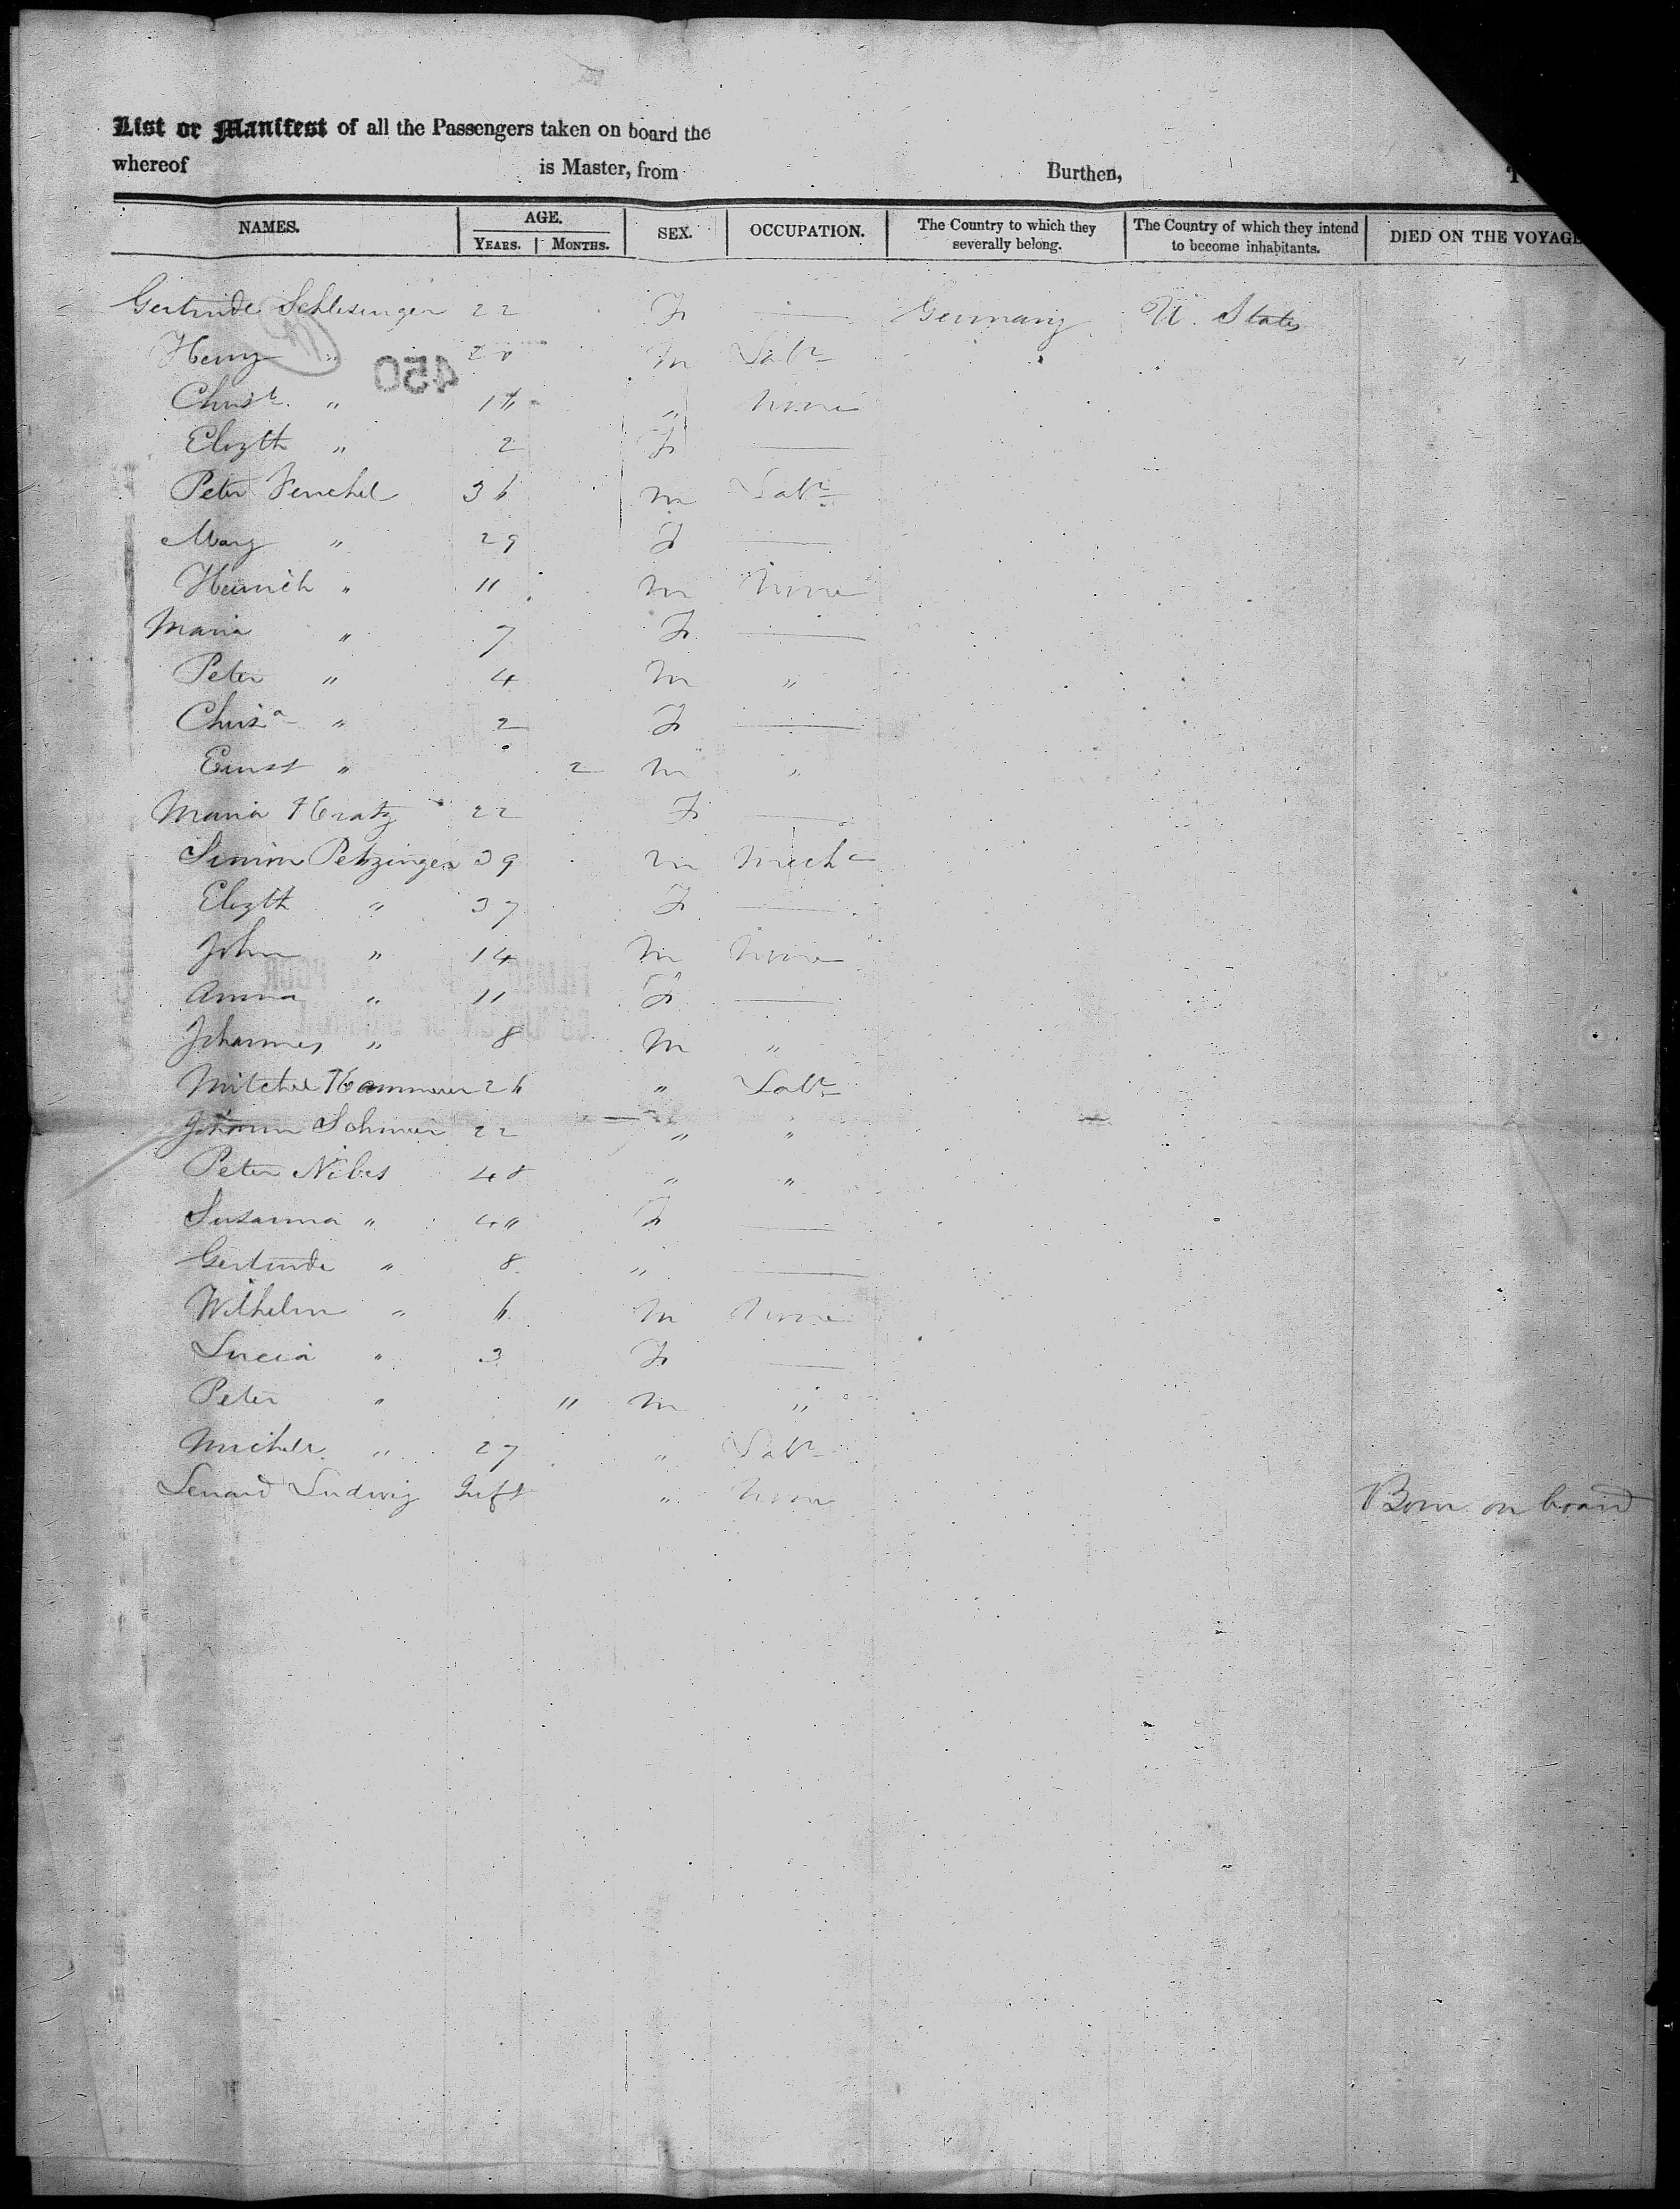 List or Manifest of all the Passengers taken on board the
whereof is Master, from Burthen,
NAMES. AGE. YEARS. MONTHS. SEX. OCCUPATION. The Country to which they severally belong. The Country of which they intend to become inhabitants. DIED ON THE VOYAGE
Gertrude Schlesinger 22 F — Germany U. States
Henry " 20 M Labr
450
Christ. " M None
Elizth " 2 F —
Peter Fenchel 36 M Labr
Mary " 29 F —
Heinrich " 11 M None
Maria " 7 F —
Peter " 4 M "
Chrisa " 2 F —
Ernst " 2 M "
Maria Kratz 22 F —
Simon Petzinger 39 M Mech
Elizth " 37 F —
John " 14 M None
Anna " 11 F —
Johannes " 8 M "
Mitchel Kammerer 26 " Labr
Johann 22 " "
Peter Nibes 48 " "
Susanna " F —
Gertrude " 8 " —
Wilhelm " 6 M None
Lucia " 3 F —
Peter " 11 M "
Michel " 27 " Labr
Lenard Ludwig Inft " None Born on board